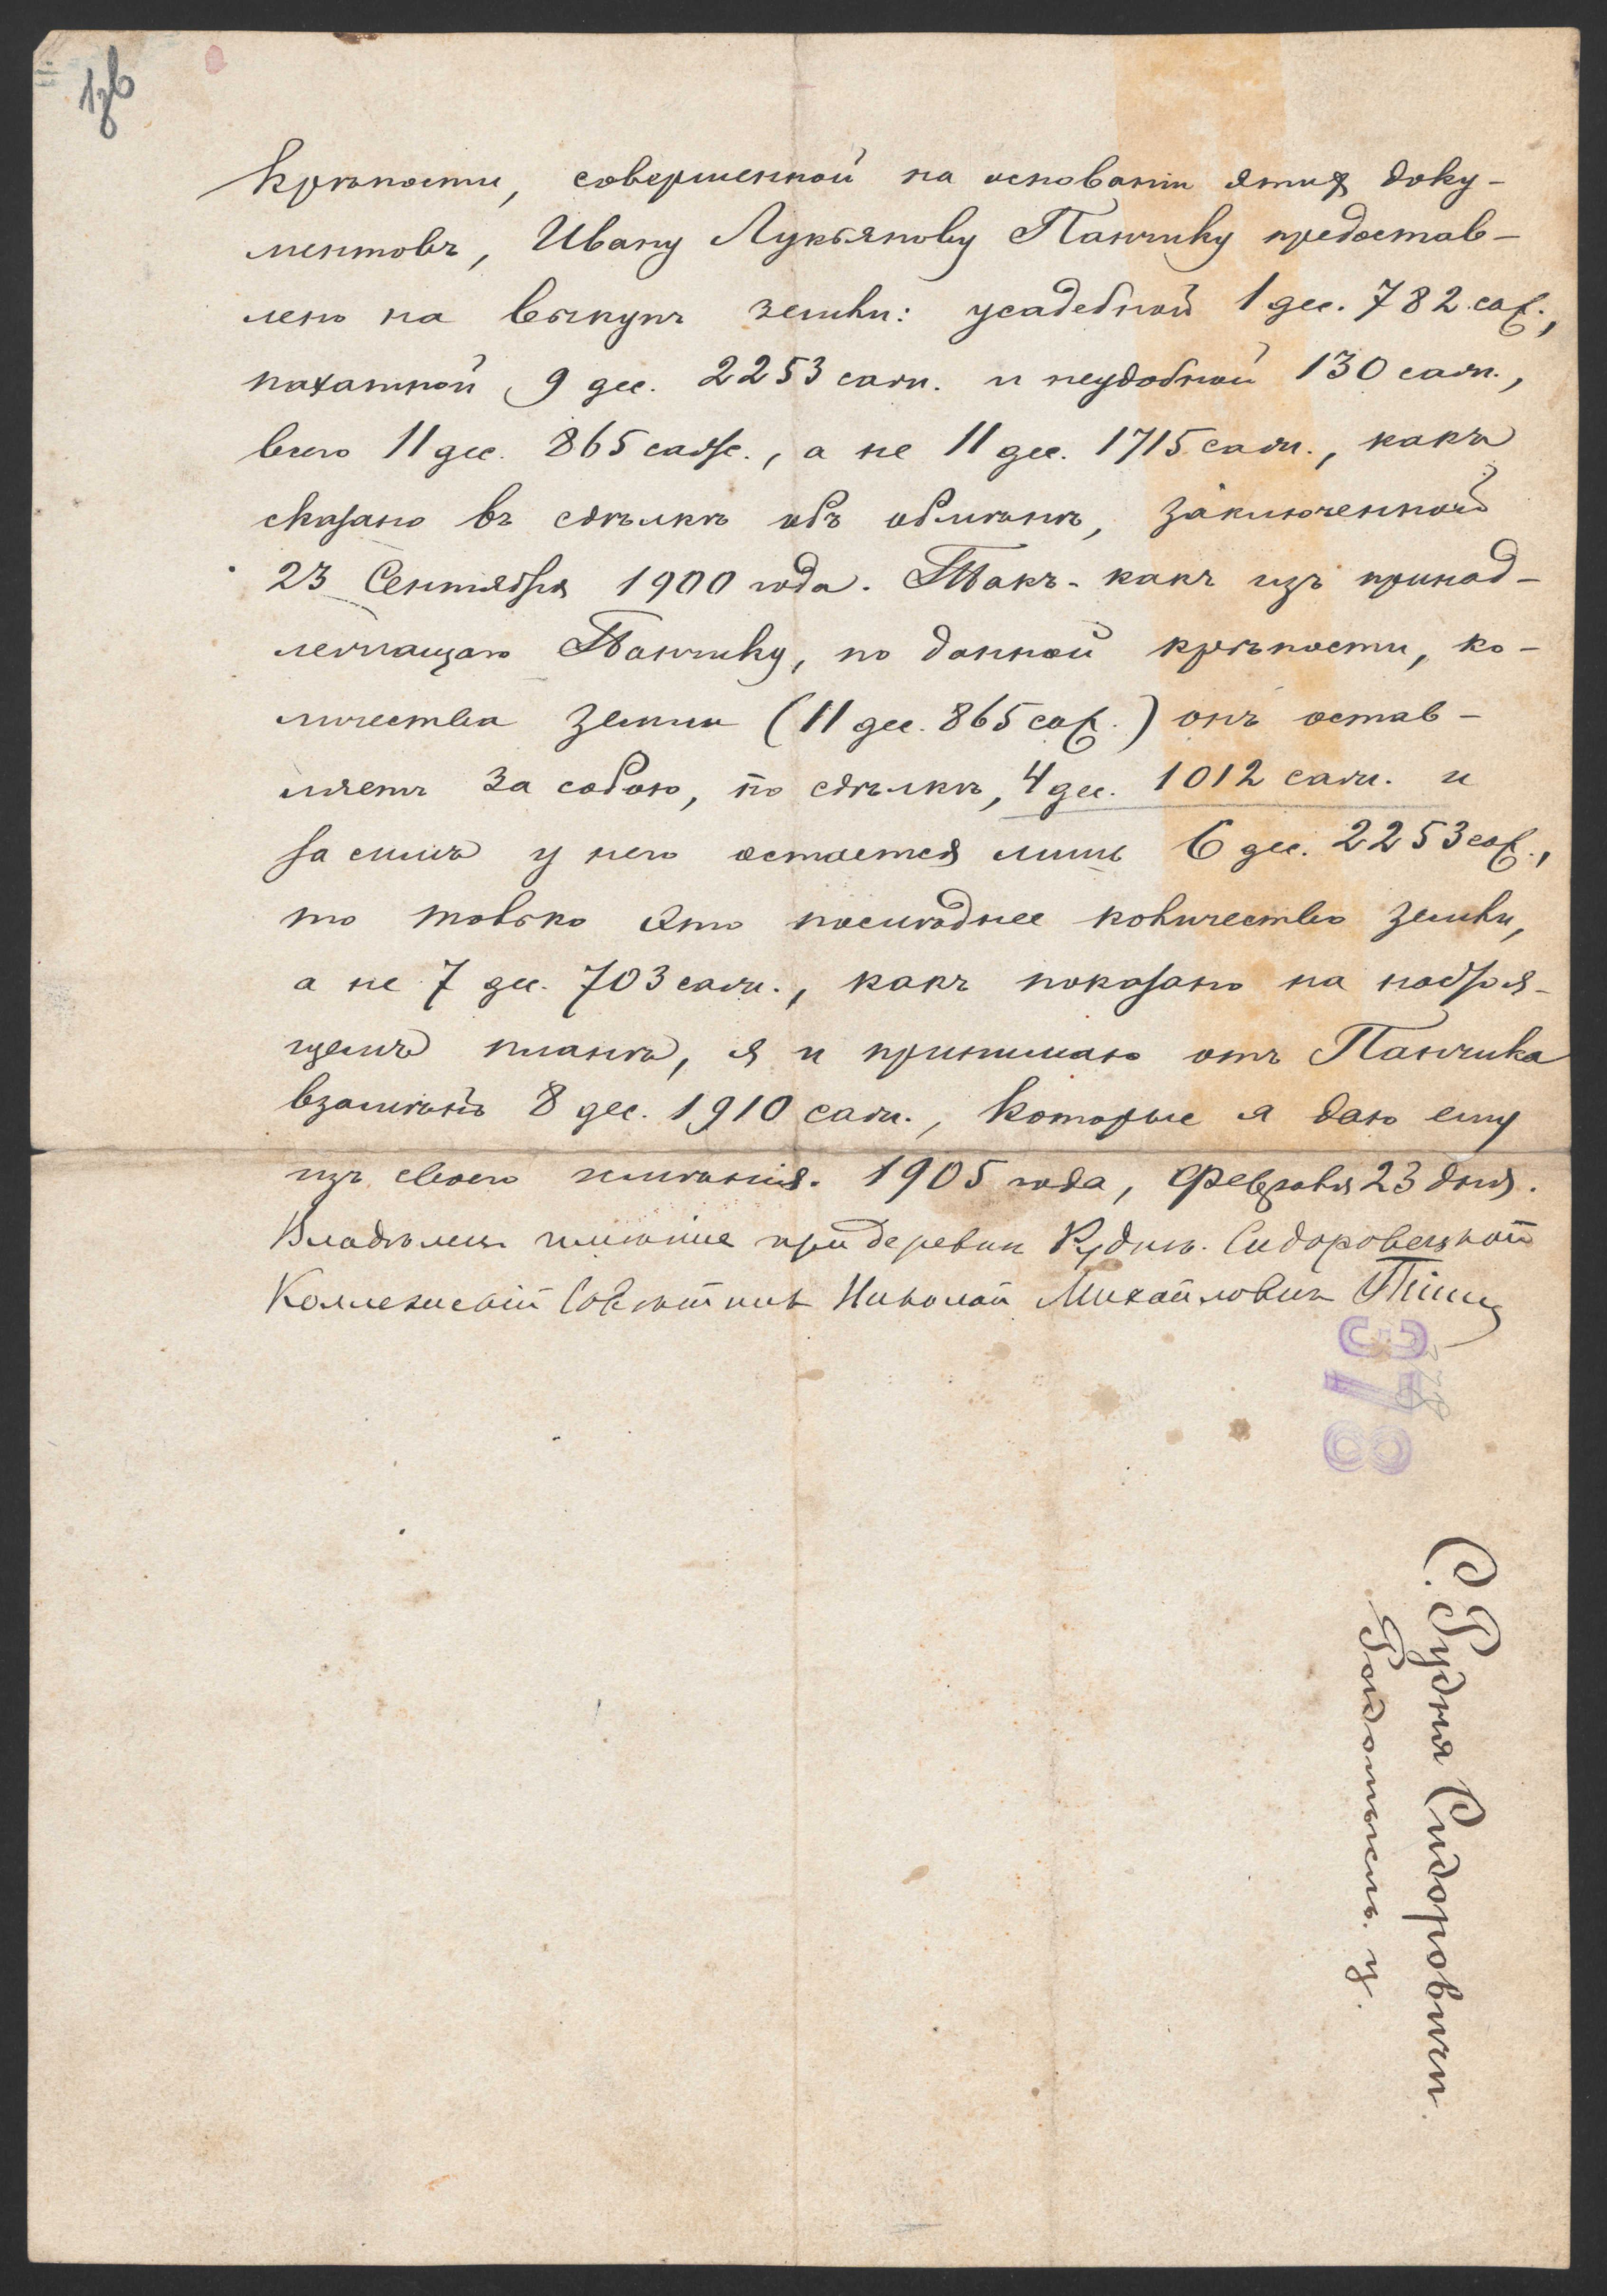 крѣпости, совершенной на основаніи этихъ доку-
ментовъ, Ивану Лукьянову Панчику предостав-
лено на выкупъ земли: усадебной 1 дес. 782 саж.,
пахатной 9 дес. 2253 саж. и неудобной 130 саж.,
всего 11 дес. 865 саж., а не 11 дес. 1715 саж., какъ
сказано въ сдѣлкѣ объ обмѣнѣ, заключенной
23 Сентября 1900 года. Такъ-какъ изъ принад-
лежащаго Панчику, по данной крѣпости, ко-
личества земли (11 дес. 865 саж.) онъ остав-
ляетъ за собою, по сдѣлкѣ, 4 дес. 1012 саж. и
за симъ у него остается лишь 6 дес. 2253 саж.,
то только это послѣднее количество земли,
а не 7 дес. 703 саж., какъ показано на настоя-
щемъ планѣ, я и принимаю отъ Панчика
взамѣнъ 8 дес. 1910 саж., которые я даю ему
изъ своего имѣнія. 1905 года, Февраля 23 дня.
Владѣлецъ имѣнія при деревни Рудни-Сидоровецкой
Коллежскій Совѣтникъ Николай Михайловичъ
378
378
С. Рудня Сидоровичи
Радомысль. у.